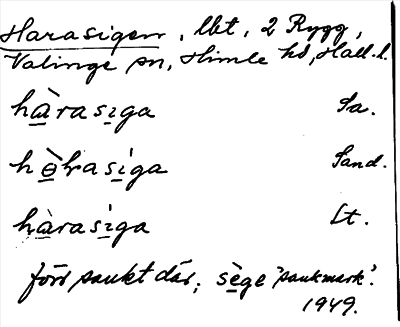 Harasigen, lht, 2 Rygg,
Valinge sn, Himle hd, Hall. l.
hàrasiga Sa.
hòrasiga Sand.
hàrasiga Lt.
förr sankt där; sège "sankmark".
1949.